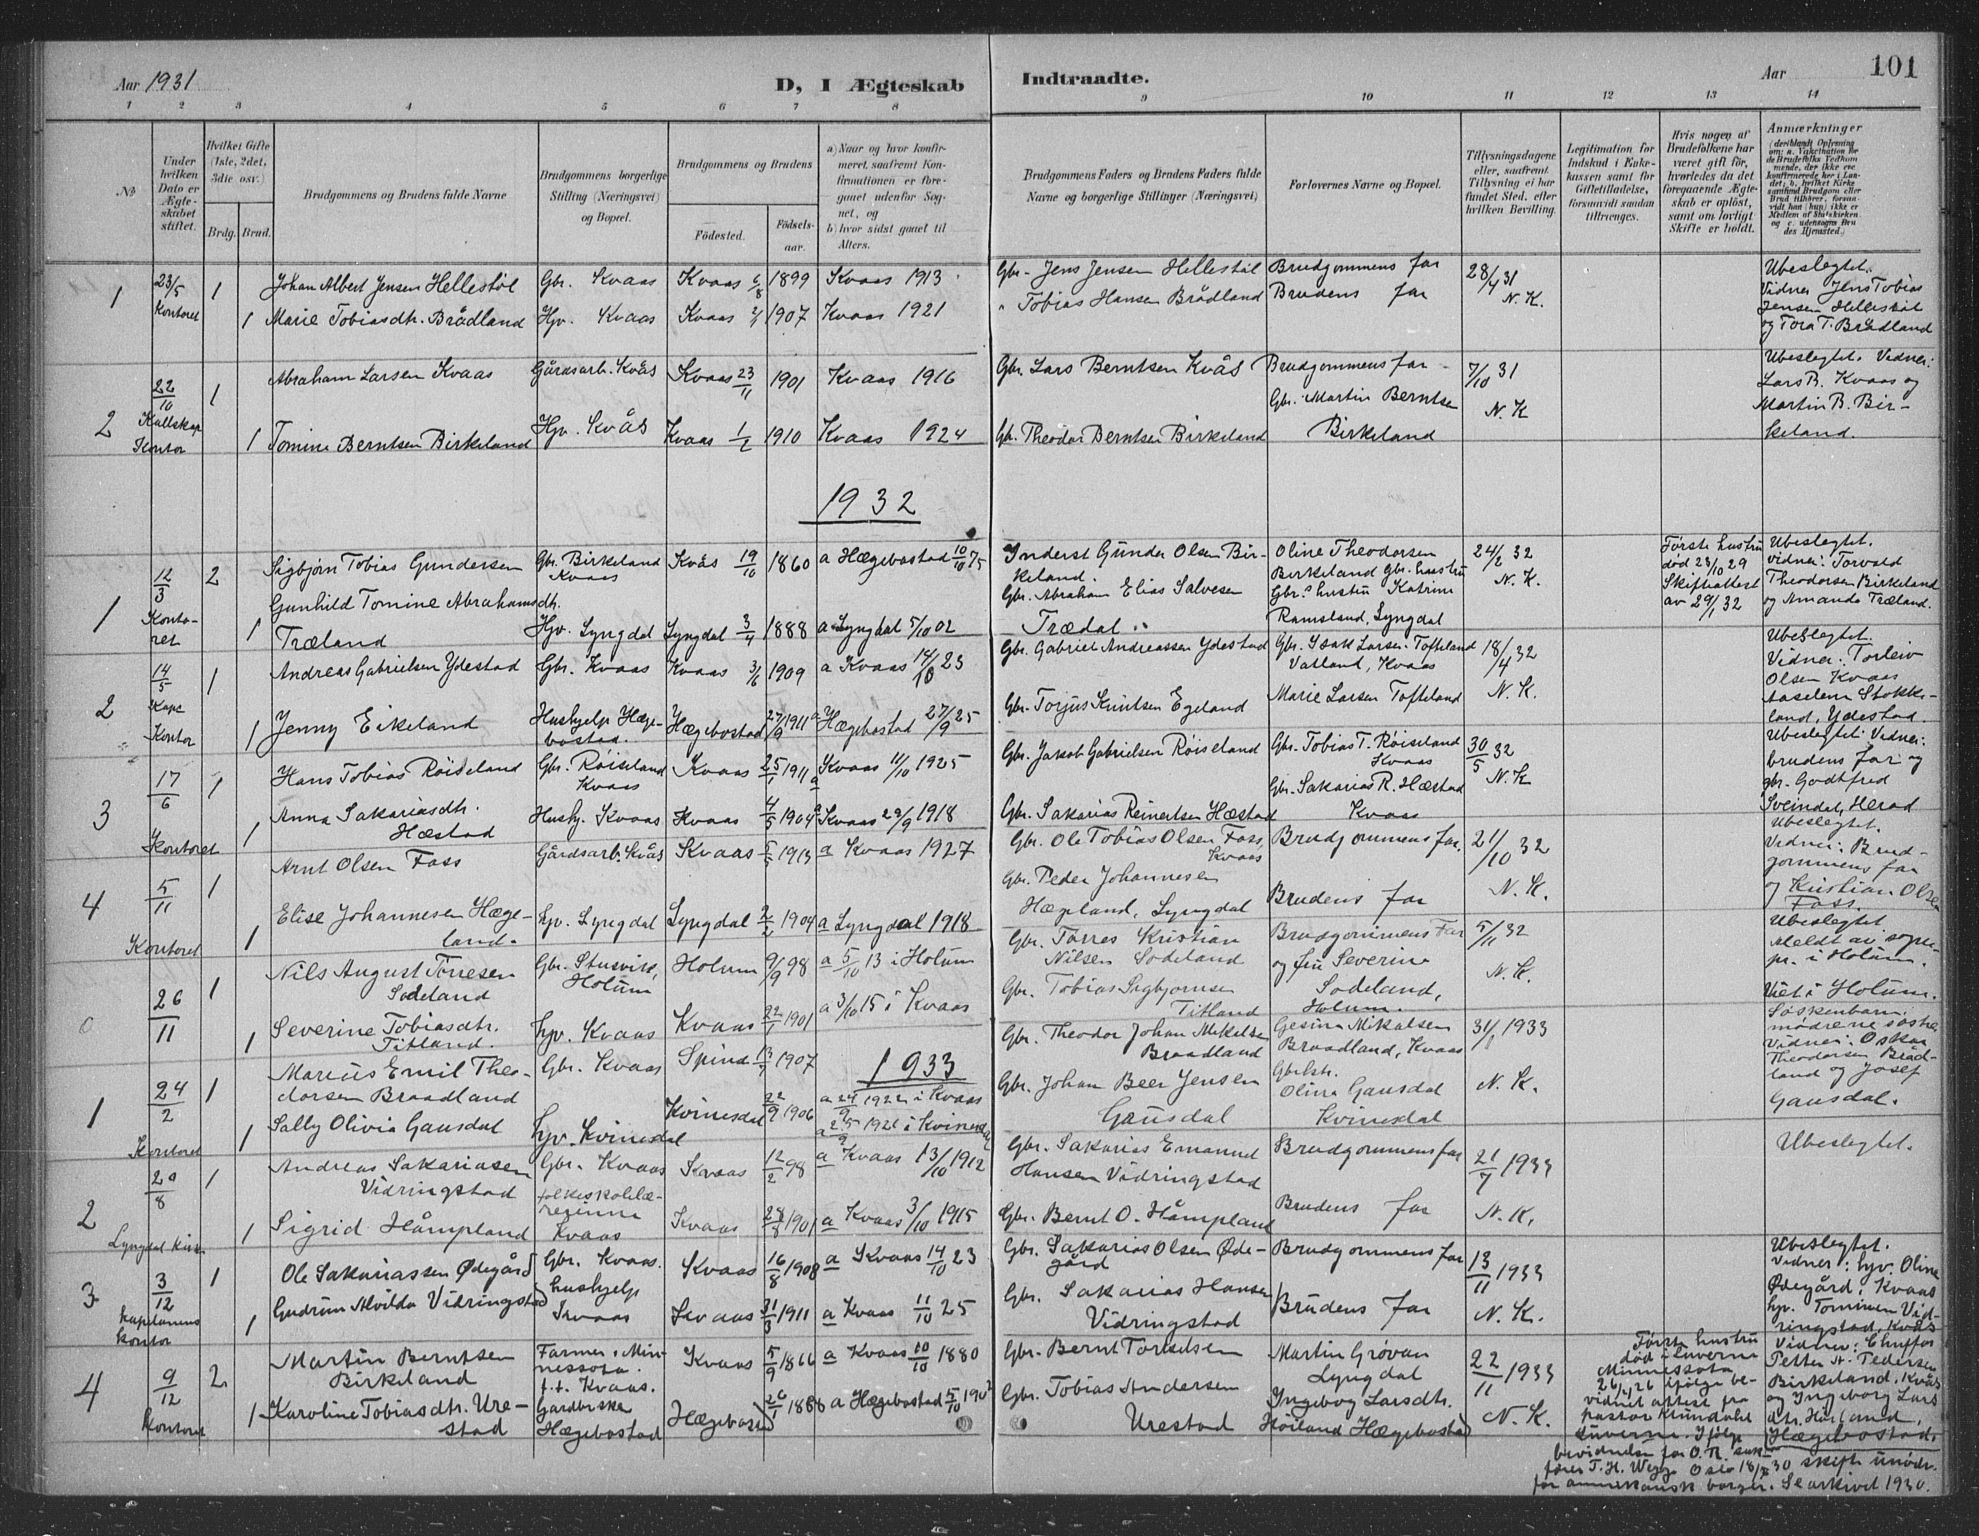 Aar 1931
D, I Ægteskab
Indtraadte.
Aar
101
1 2 3 4 5 6 7 8 9 10 11 12 13 14
No
Under hvilken Dato er Ægteskabet stiftet.
Hvilket Gifte (1ste, 2det, 3die osv.)
Brdg. Brud.
Brudgommens og Brudens fulde Navne
Brudgommens borgerlige Stilling (Næringsvei) og Bopæl.
Brudgommens og Brudens
Fødested.
Fødselsaar.
a) Naar og hvor konfirmeret, saafremt Konfirmationen er foregaaet udenfor Sognet, og
b) hvor sidst gaaet til Alters.
Brudgommens Faders og Brudens Faders fulde Navne og borgerlige Stillinger (Næringsvei)
Forlovernes Navne og Bopæl.
Tillysningsdagene eller, saafremt Tillysning ei har fundet Sted, efter hvilken Bevilling.
Legitimation for Indskud i Enkekassen samt for Giftetilladelse, forsaavidt saadan tiltrænges.
Hvis nogen af Brudefolkene har været gift før, hvorledes da det foregaaende Ægteskab er opløst, samt om lovligt Skifte er holdt.
Anmærkninger
1 23/5 Kontoret 1 Johan Albert Jensen Hellestøl Gbr. Kvaas Kvaas 6/8 1899 Kvaas 1913 Gbr. Jens Jensen Hellestøl Brudgommens far 28/4 31 N. K. Ubeslegtet. Vidner Jens Tobias Jensen Hellestøl og Tora T. Brådland
1 Marie Tobiasdtr. Brådland Hjv. Kvaas Kvaas 1907 Kvaas 1921 " Tobias Hansen Brådland Brudens far
2 22/10 Kontor 1 Abraham Larsen Kvaas Gårdsarb. Kvås Kvaas 23/11 1901 Kvaas 1916 Gbr. Lars Berntsen Kvås Brudgommens far 7/10 31 N. K Ubeslegtet. Vidner: Lars B. Kvaas og Martin B. Birkeland.
1 Tomine Berntsen Birkeland Hjv. Kvås Kvaas 1/2 1910 Kvaas 1924 Gbr. Theodor Berntsen Birkeland Gbr. Martin Berntsen Birkeland
1932
1 12/3 Kontoret 2 Sigbjørn Tobias Gundersen Gbr. Birkeland Kvaas Kvås 19/10 1860 a Hægebostad 10/10 75 Inderst Gunder Olsen Birkeland. Oline Theodorsen Birkeland Gbr. hustru 24/2 32 N. K. Første hustru død 23/10 29 Skifteattest av 29/1 32 Ubeslegtet. Vidner: Torvald Theodorsen Birkeland og Amanda Træland.
1 Gunhild Tomine Abrahamsdtr. Træland Hjv. Lyngdal Lyngdal 3/4 1888 a Lyngdal 5/10 02 Gbr. Abraham Elias Salvesen Trædal Gbr. hustru Katrine Ramsland, Lyngdal
2 14/5 Kontor 1 Andreas Gabrielsen Ydestad Gbr. Kvaas Kvaas 3/6 1909 a Kvaas 14/10 23 Gbr. Gabriel Andreassen Ydestad Gbr. Isak Larsen Tofteland Vatland, Kvaas 18/4 32 N. K. Ubeslegtet. Vidner: Torleiv Olsen Kvaas Aselem Stokkeland, Ydestad.
1 Jenny Eikeland Hushjelp Hægebostad. Hægebostad 27/9 1911 a Hægebostad 27/9 25 Gbr. Torjus Knutsen Egeland Marie Larsen Tofteland
3 17/6 Kontoret 1 Hans Tobias Røiseland Gbr. Røiseland Kvaas Kvaas 25/1 1911 a Kvaas 11/10 1925 Gbr. Jakob Gabrielsen Røiseland Gbr. Tobias T. Røiseland Kvaas 30/5 32 N. K Ubeslegtet. Vidner: brudens far og gbr. Godtfred Sveindal, Herad
1 Anna Sakariasdtr. Hæstad Hushj. Kvaas Kvaas 4/5 1904 a Kvaas 29/9 1918 Gbr. Sakarias Reinertsen Hæstad Gbr. Sakarias R. Hæstad Kvaas
4 5/11 Kontoret 1 Arnt Olsen Foss Gårdsarb. Kvås Kvaas 1913 a Kvaas 1927 Gbr. Ole Tobias Olsen Foss, Kvaas Brudgommens far. 21/10 32 N. K. Ubeslegtet. Vidner: Brudgommens far og Kristian Olsen Foss.
1 Elise Johannesen Hægeland. hjv. Lyngdal Lyngdal 2/2 1904 a Lyngdal 1918 Gbr. Peder Johannesen Hægeland, Lyngdal Brudens far
0 26/11 1 Nils August Torresen Sodeland Gbr. Stusvik, Holum Holum 9/9 98 a 5/10 13 i Holum Gbr. Torres Kristian Nilsen Sodeland Brudgommens Far og fru Severine Sodeland, Holum. 5/11 32 N. K. Ubeslegtet. Meldt av sognepr. i Holum. Viet i Holum.
1 Severine Tobiasdtr. Titland. hjv. Kvaas Kvaas 22/1 1901 a 3/10 15 i Kvaas Gbr. Tobias Sigbjørnsen Titland
1933
1 24/2 Kontoret 1 Marius Emil Theodorsen Braadland Gbr. Kvaas Spind 1907 a 24/9 1922 i Kvaas Gbr. Theodor Johan Mikelsen Braadland Gesina Mikalsen Braadland, Kvaas 31/1 1933 N. K. Søskenbarn, mødrene søstre Vidner: Oskar Theodorsen Brådland og Josef Gausdal.
1 Sally Olivia Gausdal hjv. Kvinesdal Kvinesdal 22/9 1906 a 25/9 1921 i Kvinesdal Gbr. Johan Beer Jensen Gausdal Olina Gausdal Kvinesdal
2 20/8 Lyngdal 1 Andreas Sakariasen Vidringstad Gbr. Kvaas Kvaas 12/2 98 a Kvaas 13/10 1912 Gbr. Sakarias Emanuel Hansen Vidringstad Brudgommens far 21/7 1933 N. K. Ubeslegtet.
1 Sigrid Håmpland folkeskolelærerinne Kvaas Kvaas 1901 a Kvaas 3/10 1915 Gbr. Bernt O. Håmpland Brudens far
3 3/12 kapellanens kontor 1 Ole Sakariassen Ødegård Gbr. Kvaas. Kvaas 16/8 1908 a Kvaas 14/10 23 Gbr. Sakarias Olsen Ødegård Brudgommens far 13/11 1933 N. K. Ubeslegtet. Vidner: hjv. Oline Ødegård, Kvaas hjv. Tomine Vidringstad, Kvås
1 Gudrun Alvilda Vidringstad hushjelp Kvaas Kvaas 31/3 1911 a Kvaas 11/10 25 Gbr. Sakarias Hansen Vidringstad Brudens far
4 9/12 Kontoret 2 Martin Berntsen Birkeland Farmer, Minnessota. f.t. Kvaas. Kvaas 5/9 1866 a Kvaas 10/10 1880 Gbr. Bernt Torkelsen Martin Grøvan Lyngdal 22/11 1933 N. K. Første hustru død i Luverne Minnessota 26/1 26 ifølge bevidnet attest fra pastor Luverne. Ifølge bevidnelse fra O. R. sakfører T. H. Wegge Oslo 30 skifte unødv. for amerikansk borger. Se arkivet 1930. Vidner: Chuffør Petter A. Pedersen Birkeland, Kvås og Ingeborg Larsdtr. Høiland, Hægebostad.
1 Karoline Tobiasdtr. Urestad Gardbruker Hægebostad Hægebostad 26/1 1888 a Hægebostad 5/10 1902 Gbr. Tobias Andersen Urestad Ingebog Larsdtr. Høiland Hægebostad